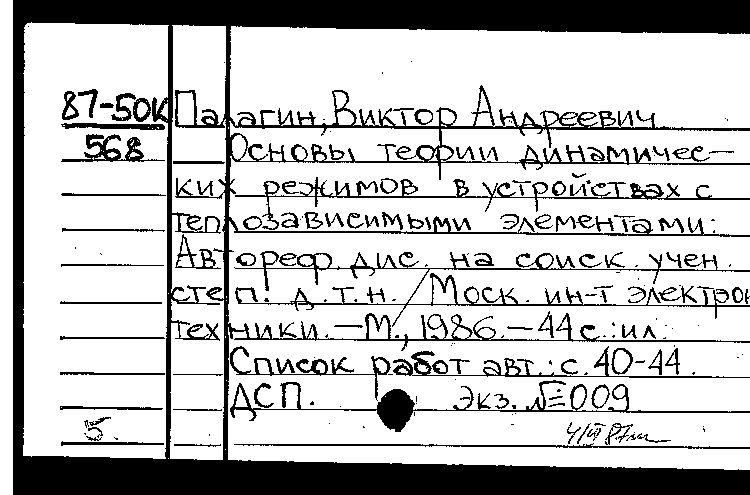 87-50К Палагин, Виктор Андреевич
568 Основы теории динамичес-
ких режимов в устройствах с
теплозависимыми элементами:
Автореф. дис. на соиск. учен.
степ. д.т.н. / Моск. ин-т электрон
техники. – М., 1986. – 44 с.: ил.
Список работ авт.: с. 40-44.
ДСП. Экз. № 009
5.